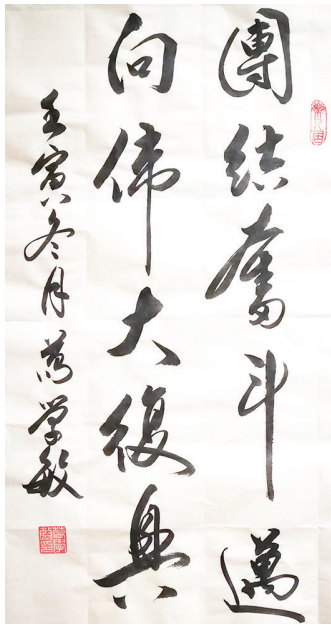 團结奮斗邁
向伟大復興
壬寅冬月学敏